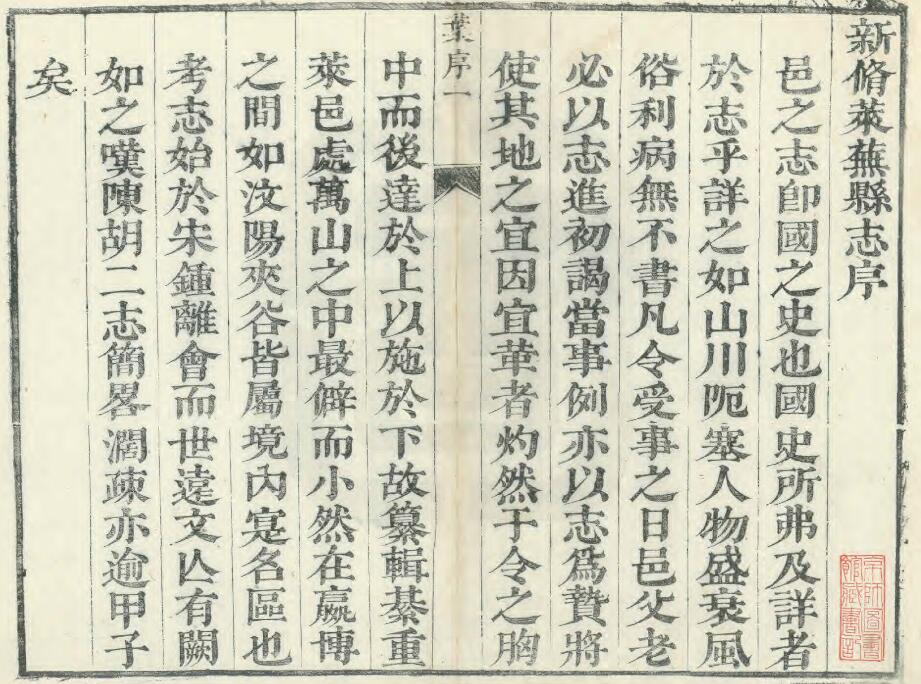 新脩萊蕪縣志序
邑之志卽國之史也國史所弗及詳者
於志乎詳之如山川阨塞人物盛衰風
俗利病無不書凡令受事之日邑父老
必以志進初謁當事例亦以志爲贄將
使其地之宜因宜革者灼然于令之胸
葉序一
中而後達於上以施於下故纂輯綦重
萊邑處萬山之中最僻而小然在嬴博
之間如汶陽夾谷皆屬境內寔名區也
考志始於宋鍾離會而世遠文亾有闕
如之嘆陳胡二志簡畧濶疎亦逾甲子
矣